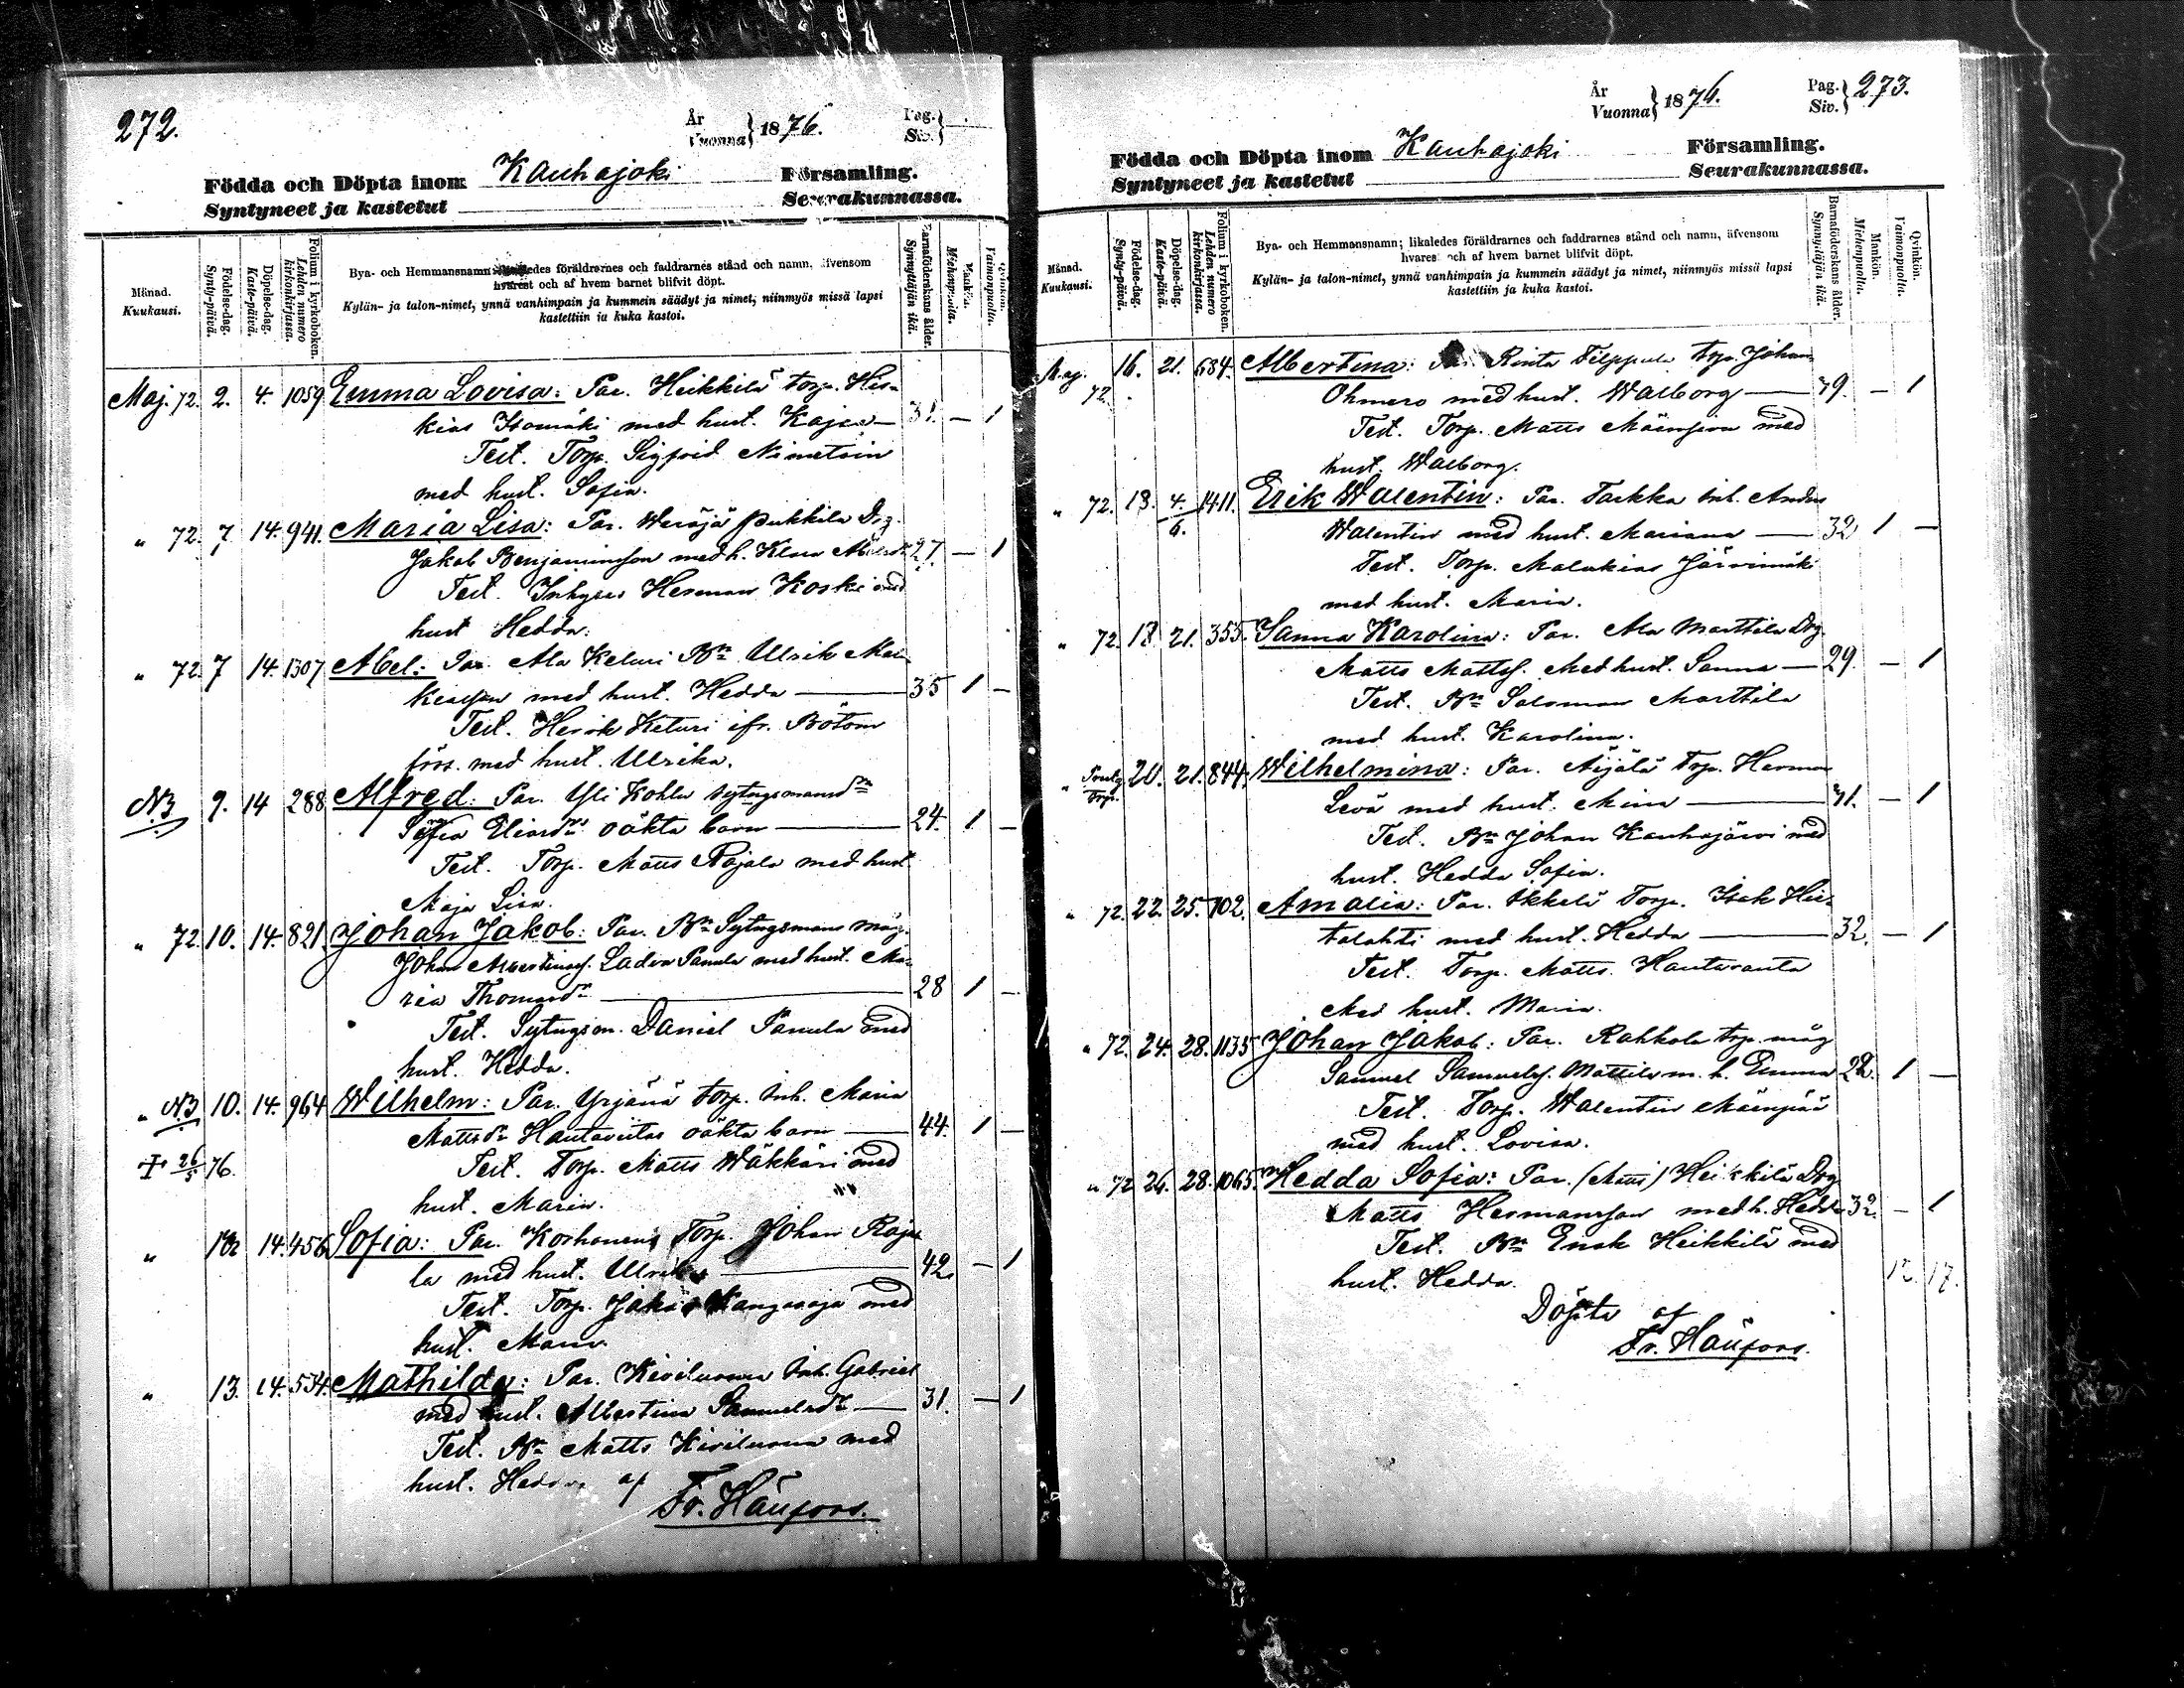 272.
År
Vuonna } 1876.
Pag.
Siv. }
Födda och Döpta inom Kauhajoki Församling.
Syntyneet ja kastetut Seurakunnassa.
Månad.
Kuukausi.
Födelse-dag.
Synty-päivä.
Döpelse-dag.
Kaste-päivä.
Folium i kyrkoboken.
Lehden numero kirkonkirjassa.
Bya- och Hemmansnamn; likaledes föräldrarnes och faddrarnes stånd och namn, äfvensom
hvarest och af hvem barnet blifvit döpt.
Kylän- ja talon-nimet, ynnä vanhimpain ja kummein säädyt ja nimet, niinmyös missä lapsi
kastettiin ja kuka kastoi.
Barnaföderskans ålder.
Synnyttäjän ikä.
Mankön.
Miehenpuolta.
Qvinkön.
Vaimonpuolta.
Maj. 72. 2. 4. 1059 Emma Lovisa: Par. Heikkilä torp. Hes-
kias Isomäki med hust. Kajsa — 31. — 1
Test. Torp. Sigfrid Nimetöin
med hust. Sofia.
" 72. 7 14. 941. Maria Lisa: Par. Weräjä Pukkila Drg.
Jakob Benjaminsson med h. Klara 27. — 1
Test. Inhyses Herman Koski med
hust Hedda.
" 72. 7 14. 1307 Abel: Par. Ala Keturi Bn Ulrik Mal-
keasson med hust. Hedda — 35 1 —
Test. Henrik Keturi ifr. Bötom
förs. med hust. Ulrika.
NB 9. 14 288 Alfred: Par. Yli Kohlu sytngsmansdr
Sofia Eliasdrs oäkta barn — 24. 1 —
Test. Torp. Matts Rajala med hust.
Maja Lisa.
" 72. 10. 14. 821. Johan Jakob: Par. Bn Sytngsmans måg
Johan Ladva Panula med hust. Ma-
ria Thomasdr — 28 1 —
Test. Sytngsm. Daniel Panula med
hust. Hedda.
" NB 10. 14. 964 Wilhelm: Par. Yrjänä torp. Inh. Maria
Mattsdr Hautaviitas oäkta barn — 44. 1 —
† 26/5 76. Test. Torp. Matts Wäkkäri med
hust. Maria.
" 14. 456. Sofia: Par. Korhonen, Torp. Johan Raja-
la med hust. Ulrika — 42. — 1
Test. Torp. Jakob Kangasaja med
hust. Maria
" 13. 14. 534. Mathilda: Par. Kiviluoma Inh. Gabriel
med hust. Albertina Samuelsdr — 31. — 1
Test. Bn Matts Kiviluoma med
hust. Hedda. af
Fr. Häufors.
År
Vuonna } 1876.
Pag.
Siv. } 273.
Födda och Döpta inom Kauhajoki Församling.
Syntyneet ja kastetut Seurakunnassa.
Månad.
Kuukausi.
Födelse-dag.
Synty-päivä.
Döpelse-dag.
Kaste-päivä.
Folium i kyrkoboken.
Lehden numero kirkonkirjassa.
Bya- och Hemmansnamn; likaledes föräldrarnes och faddrarnes stånd och namn, äfvensom
hvarest och af hvem barnet blifvit döpt.
Kylän- ja talon-nimet, ynnä vanhimpain ja kummein säädyt ja nimet, niinmyös missä lapsi
kastettiin ja kuka kastoi.
Barnaföderskans ålder.
Synnyttäjän ikä.
Mankön.
Miehenpuolta.
Qvinkön.
Vaimonpuolta.
Maj. 72. 16. 21. 684. Albertina: Par. Rinta Filppula trp. Johan
Ohmero med hust. Walborg — 39. — 1
Test. Torp. Matts Mäenpää med
hust. Walborg.
" 72. 13. 4/6. 1411. Erik Walentin: Par. Tarkka Inh. Anders
Walentin med hust. Mariana — 32 1 —
Test. Torp. Malakias Järvimäki
med hust. Maria.
" 72. 18 21. 355. Sanna Karolina: Par. Ala Marttila Drg.
Matts Mattss. Med hust. Sanna — 29. — 1
Test. Bn Salomon Marttila
med hust. Karolina.
" 20. 21. 844. Wilhelmina: Par. Äijälä Trp. Herman
Levä med hust. Mina — 31. — 1
Test. Bn Johan Kauhajärvi med
hust. Hedda Sofia.
" 72. 22. 25. 702. Amalia: Par. Ikkelä Torp. Isak Hie-
talahti med hust. Hedda — 32. — 1
Test. Torp. Matts. Hautaranta
Med hust. Maria.
" 72. 24. 28. 1135 Johan Jakob: Par. Rahkola trp. måg
Samuel Samuelss. Mattila m. h. Emma 22. 1 —
Test. Torp. Walentin Mäenpää
med hust. Lovisa.
" 72 26. 28. 1065. Hedda Sofia: Par. (Anti) Heikkilä Drg
Matts Hermansson med h. Hedda 32. — 1
Test. Bn Enok Heikkilä med
hust. Hedda. 12. 17.
Döpta af
Fr. Häufors.